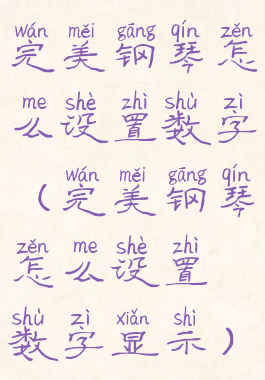 wán měi gāng qín zěn
完美钢琴怎
me shè zhì shù zì
么设置数字
wán měi gāng qín
（完美钢琴
zěn me shè zhì
怎么设置
shù zì xiǎn shì
数字显示）